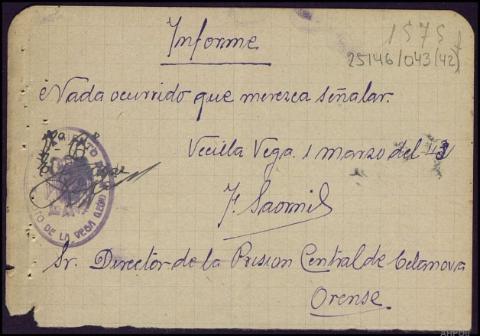 Informe
1575
25146/043(42)
Nada ocurrido que merezca señalar.
Vecilla Vega 1 marzo del 43
Sr. Director de la Prision Central de Celanova
Orense.
TO DE LA VEGA (LEON)